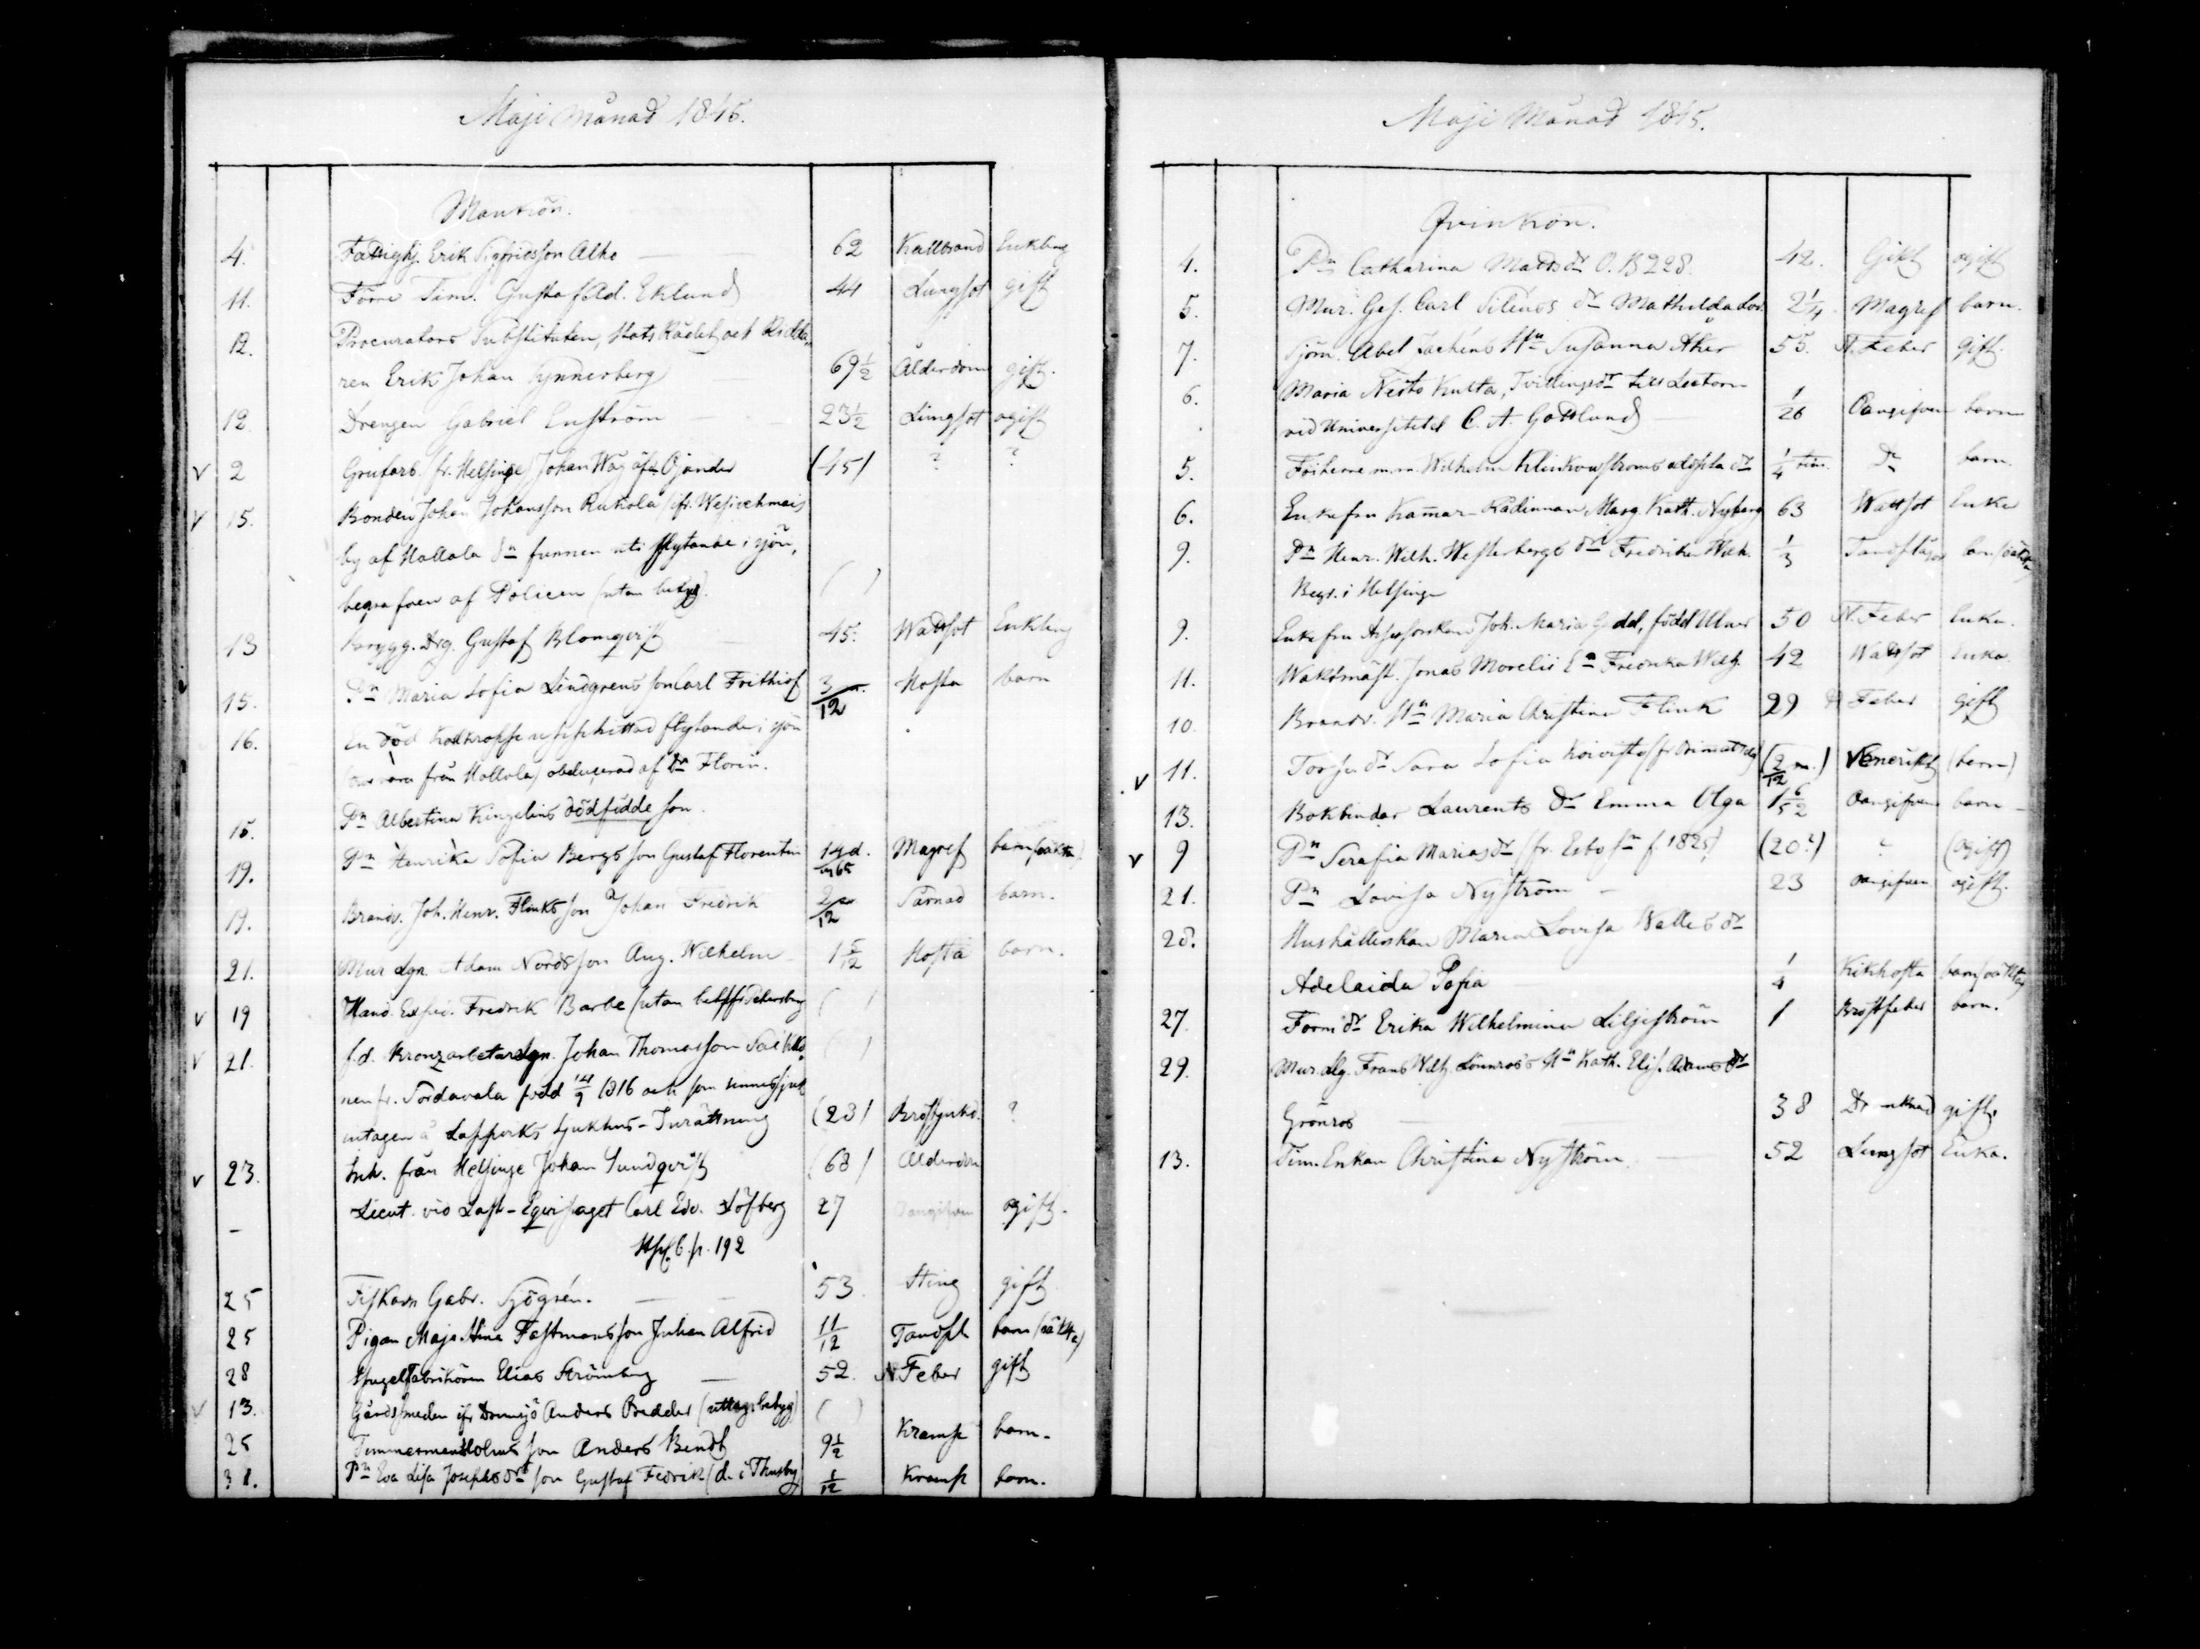 Maji Månad 1845.
Mankön.
4. Fattighj. Erik Sigfridsson Alho 62 Kallbrand Enkling
11. Förre Tim. Gustaf Ad. Eklund 44 Lungsot gift
12. Procurators Substituten, Stats Rådet och Ridda-
ren Erik Johan Synnerberg 69 1/2 Ålderdom gift.
12 Drengen Gabriel Enström 23 1/2 Lungsot ogift
v 2 (fr. Helsinge) Johan Ojander (45) ? ?
v 15. Bonden Johan Johansson Rukola ifr.
by af Hollola Sn funnen uti flytande i sjön,
begrafven af Policen (utan betyg). ( )
13 Drg. Gustaf Blomqvist 45. Wattsot Enkling
15. Pn Maria Sofia Lindgrens son Carl Frithiof 3/12 m. Hosta barn
16. En död flytande i sjön
från Hollola) af Dr Florin.
15. Pn Albertina Kingelins dödfödde son.
19. Pn Henrika Sofia Bergs son Gustaf Florentin 14 d. Magref barn (oäkta)
19. Brandv. Joh. Henr. Flinks son Johan Fredrik 2/12 Sårnad barn.
21. Mur Lgn. Adam Nords son Aug. Wilhelm 1 5/12 Hosta barn.
v 19 Hand. Exped. Fredrik Barbe (utan bet. fr. Petersburg ( )
v 21. f.d. Johan Thomasson
nen fr. Sordavala född 14/9 1816 och som sinnessjuk
intagen å Lappviks Sjukhus-Inrättning (28) Bröstsjukd. ?
v 23. Inh. från Helsinge Johan Sundqvist (68) Ålderdom
- Lieut. vid Last-Equipaget Carl Edv. Löfberg 27 Oangifven ogift.
p. 192
25 Fiskarn Gabr. Sjögrén. 53 Sting gift
25 Pigan Maja Stina Fastmans son Johan Alfrid 11/12 Tandsl. barn (oäkta)
28 Spegelfabrikören Elias Strömberg 52. N. Feber gift
v 13. Gårdssmeden Anders ( )
25 Timmerman Holms son Anders Bendt 9 1/2 Kramp barn.
31. Pn Eva Lisa Josephsdr son Gustaf Fredrik (d. i Thusby 1/12 Kramp barn.
Maji Månad 1845.
Qvinkön.
4. Pn Catharina Mattsdr O. B 228. 42. Gikt ogift
5. Mur. Ges. Carl Silénos dr Mathilda Lov. 2 1/4. Magref barn.
7. Sjöm. Abel Hu Susanna Åker 55. N. Feber gift.
6. Maria Nesto Kulta, Tvillingsdr till Lectorn
vid Universitetet C. A. Gottlund 1/26 Oangifven barn
5. Friherre m.m. Wilhelm Klinkowströms odöpta dr 1/4 tim. Do barn.
6. Enkefru Kamar-Rådinnan Marg. Kath. Nyberg 63 Wattsot Enka
9. Pn Henr. Wilh. Westerbergs dr Fredrika Wilh. 1/3 Tandslag (oäkta)
Begr. i Helsinge
9. Enkefru Assessorskan Joh. Maria född 50 N. Feber Enka.
11. Waktmäst. Jonas Morelii Ea Fredrika Wilh. 42 Wattsot Enka.
10. Brandv. Hu Maria Christina Flink 29 N Feber gift
v 11. dr Sara Sofia Koivisto (2/12 m.) Venerisk (barn)
13. Bokbindar Laurents dr Emma Olga 1 6/52 Oangifven barn
v 9 Pn Serafia Mariasdr (fr. Esbo Sn f. 1825) (20?) ? (ogift)
21. Pn Lovisa Nyström 23 Oangifven ogift.
28. Hushållerskan Maria Lovisa Walls dr
Adelaida Sofia 1/4 Kikhosta barn (oäkta)
27. Form. dr Erika Wilhelmina Liljeström 1 Bröstfeber barn.
29. Mur. Lg. Frans Wilh. Lönnros's Hu Kath. Elis. Adamsdr
Grönros 38 Drunknad gift.
13. Tim. Enkan Christina Nyström 52 Lungsot Enka.